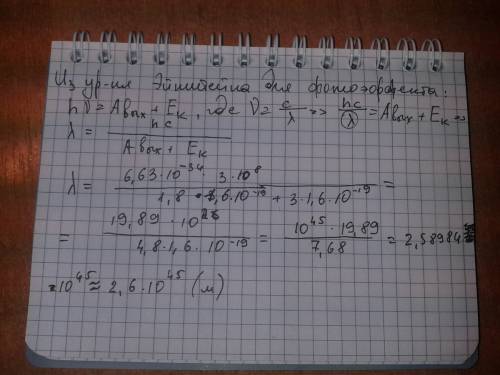 Из ур-ия Эйнштейна для фотоэффекта:
hν = Aвых + Eк, где ν = c/λ => hc/λ = Aвых + Eк =>
λ = hc / (Aвых + Eк)
λ = 6,63·10^-34 · 3·10^8 / (1,8·1,6·10^-19 + 3·1,6·10^-19) =
= 19,89·10^26 / (4,8·1,6·10^-19) = 10^45·19,89 / 7,68 = 2,58984
·10^45 ≈ 2,6·10^45 (м)